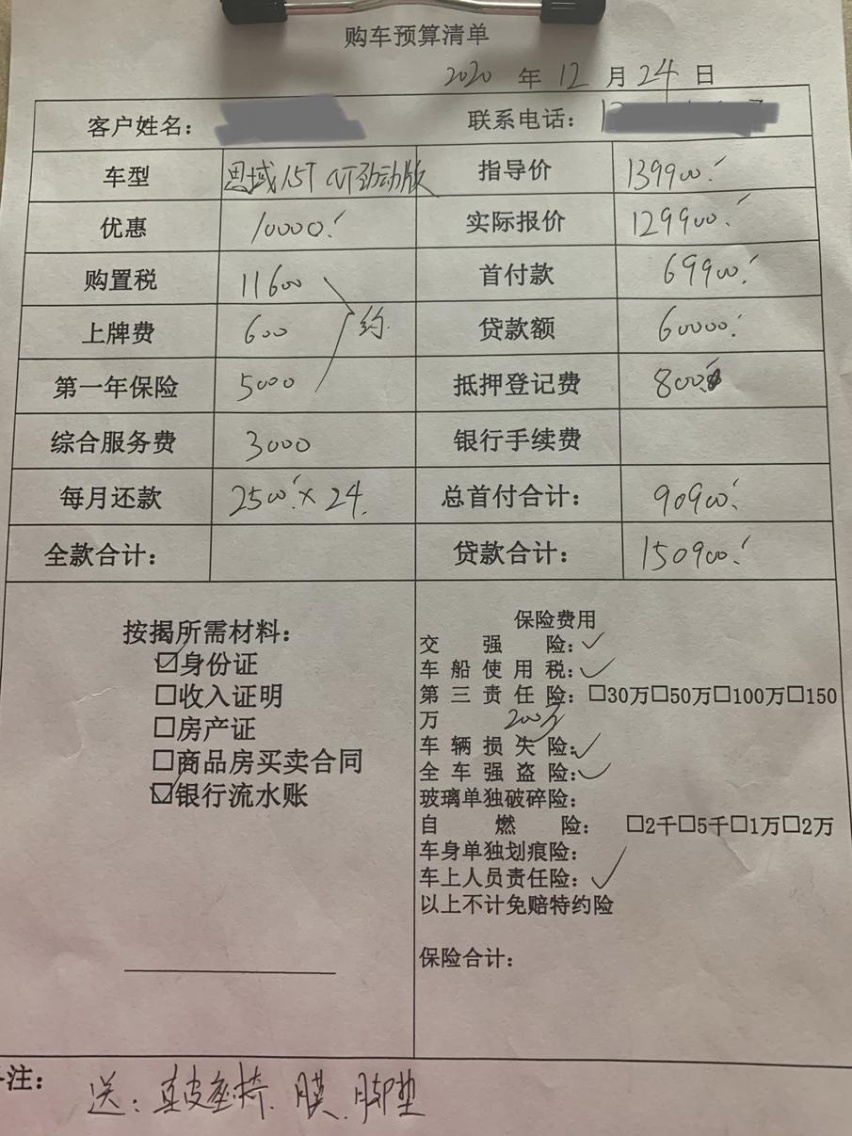 购车预算清单
2020 年 12 月 24 日
客户姓名： 联系电话：
车型 思域1.5T CVT劲动版 指导价 139900.
优惠 10000. 实际报价 129900.
购置税 11600 首付款 69900.
上牌费 600 约 贷款额 60000.
第一年保险 5000 抵押登记费 800.
综合服务费 3000 银行手续费
每月还款 2500.×24. 总首付合计： 90900.
全款合计： 贷款合计： 150900.
按揭所需材料：
☑身份证
□收入证明
□房产证
□商品房买卖合同
☑银行流水账
保险费用
交强险：✓
车船使用税：✓
第三责任险：□30万□50万□100万□150
万 200万
车辆损失险：✓
全车强盗险：✓
玻璃单独破碎险：
自燃险： □2千□5千□1万□2万
车身单独划痕险：
车上人员责任险：✓
以上不计免赔特约险
保险合计：
注： 送：真皮座椅、膜、脚垫